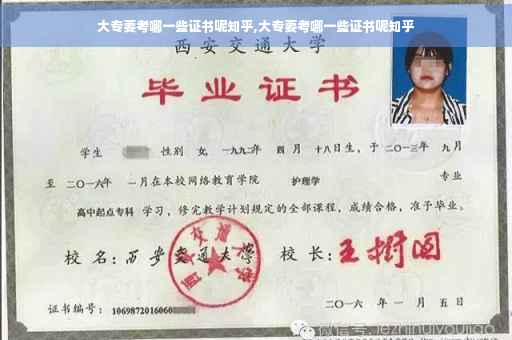 大专要考哪一些证书呢知乎,大专要考哪一些证书呢知乎
西安交通大学
毕业证书
学生 性别 女, 一九九二年 四 月 十八日生, 于 二〇一三年 九月
至 二〇一六年 一月在本校网络教育学院 护理学 专业
高中起点专科 学习, 修完教学计划规定的全部课程, 成绩合格, 准予毕业。
校 名: 西安交通大学 校 长: 王树国
西安交通大学
二〇一六 年 一 月 五 日
证书编号: 1069872016060
微信号: jezhinuiyoujiao